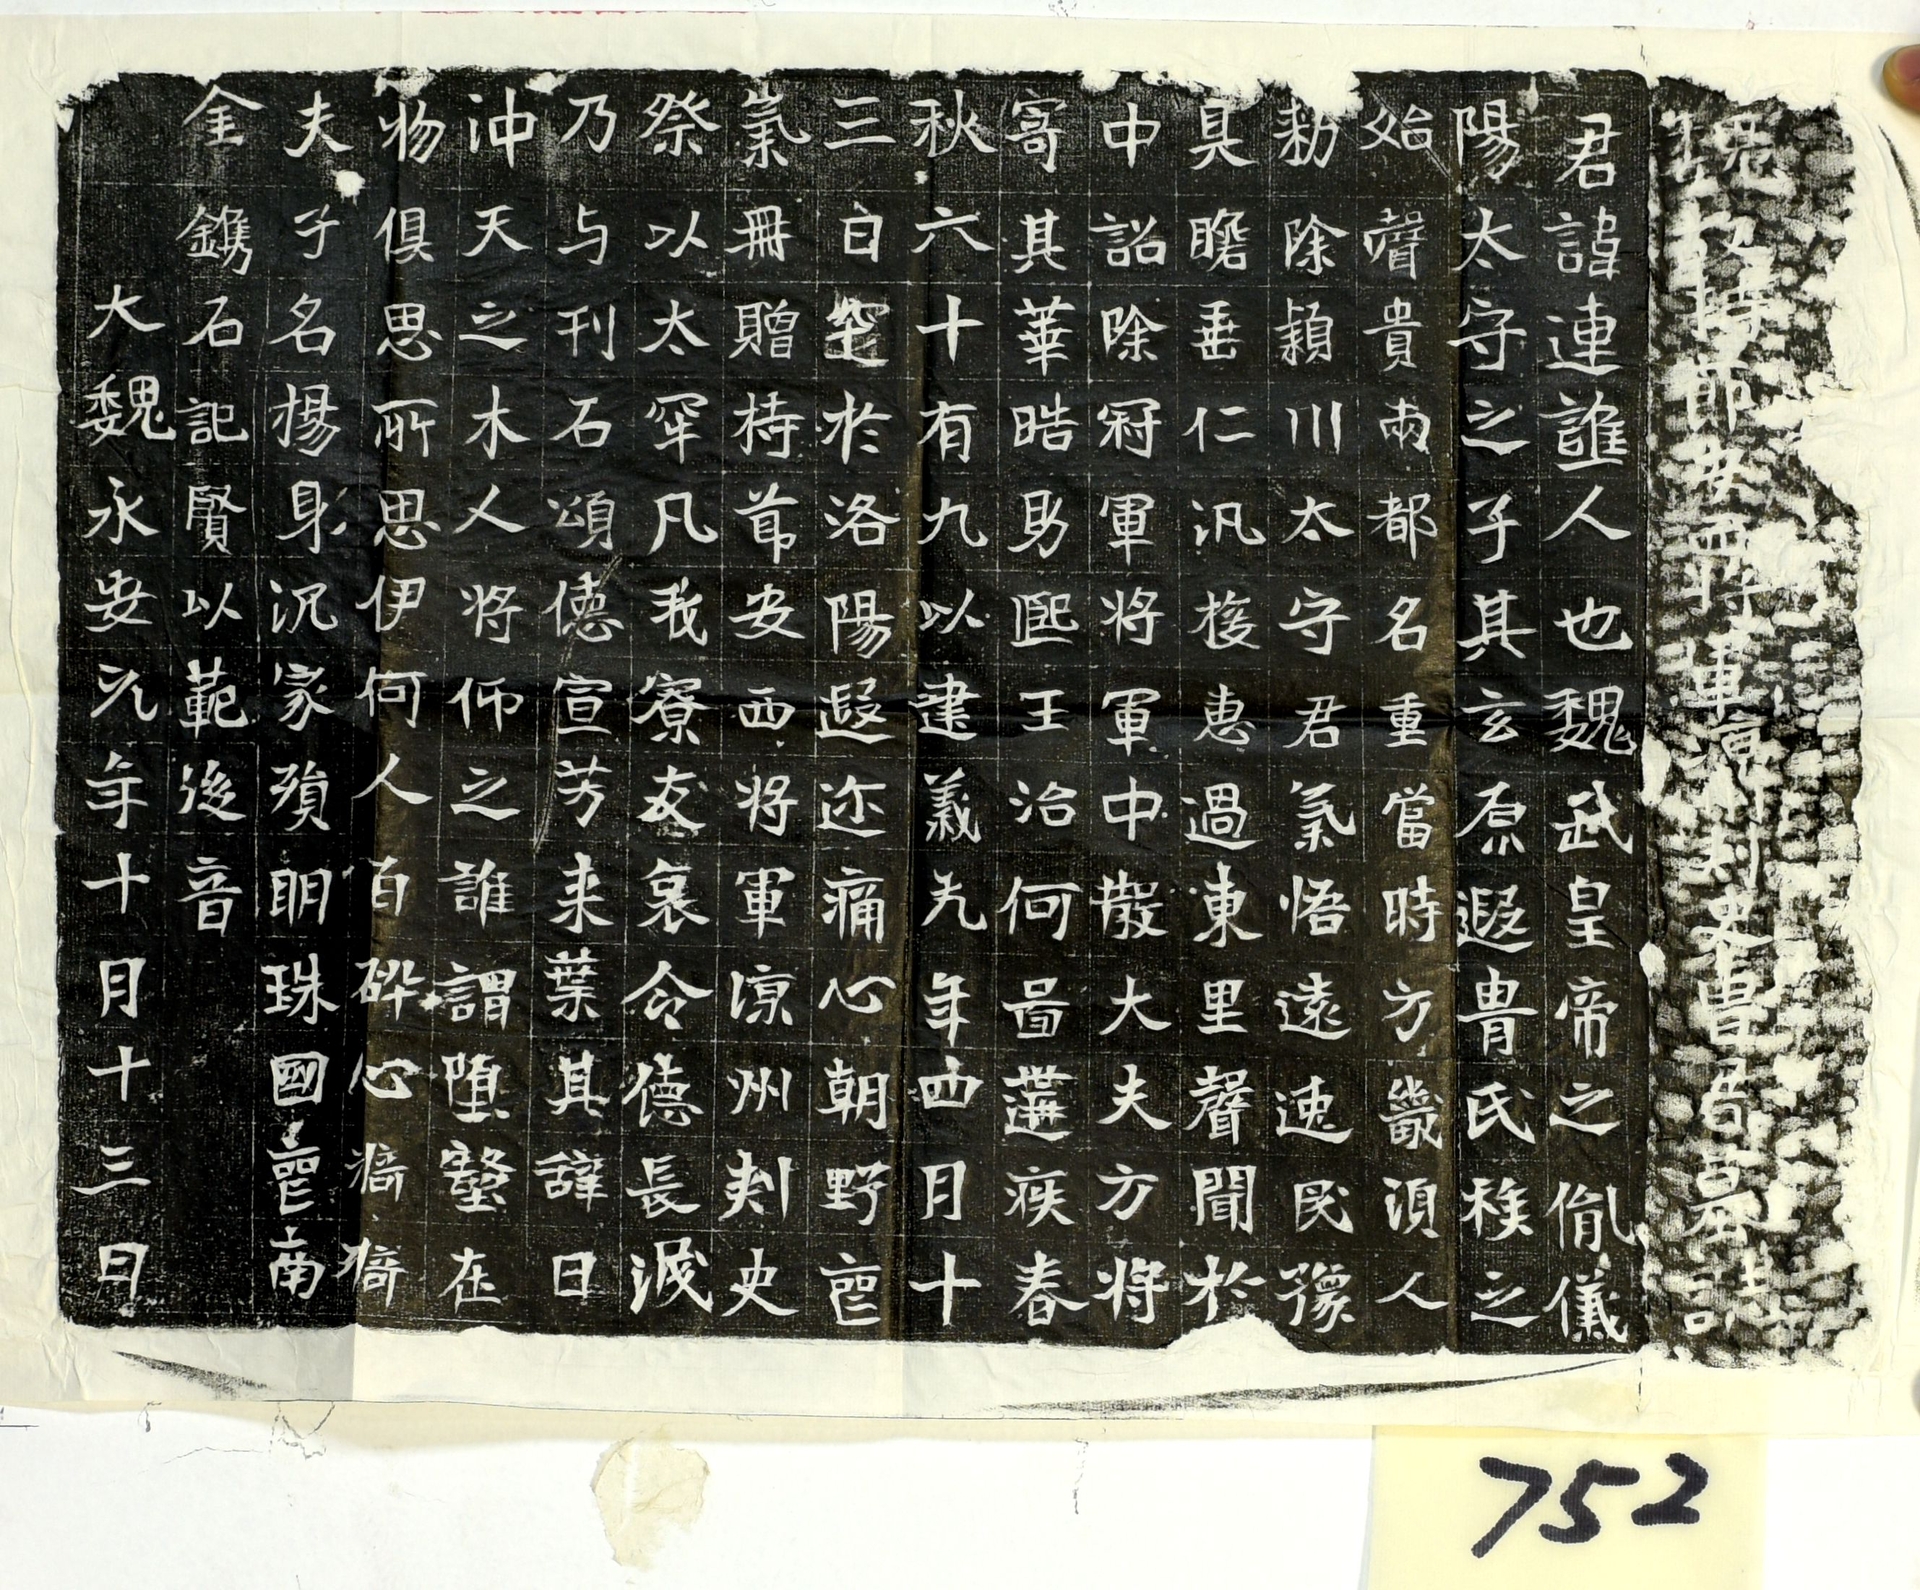 魏故持節安西將軍涼州刺史曹君墓誌
君諱連譙人也魏武皇帝之胤儀
陽太守之子其玄原遐冑氏族之
始聲貴兩都名重當時方畿湏人
勑除潁川太守君氣悟遠速民豫
具瞻垂仁汎接惠過東里聲聞於
中詔除冠軍將軍中散大夫方將
寄其華皓助熙王治何啚遘疾春
秋六十有九以建義元年四月十
三日窆於洛陽遐迩痛心朝野啚
氣冊贈持節安西將軍涼州刾史
祭以太牢凡我寮友哀令德長滅
乃与刊石頌德宣芳来葉其辞曰
沖天之木人將仰之誰謂墮壑在
物俱思所思伊何人百碎心痛痛
夫子名揚身沉家殞明珠國啚南
金鐫石記賢以範後音
大魏永安元年十月十三日
752